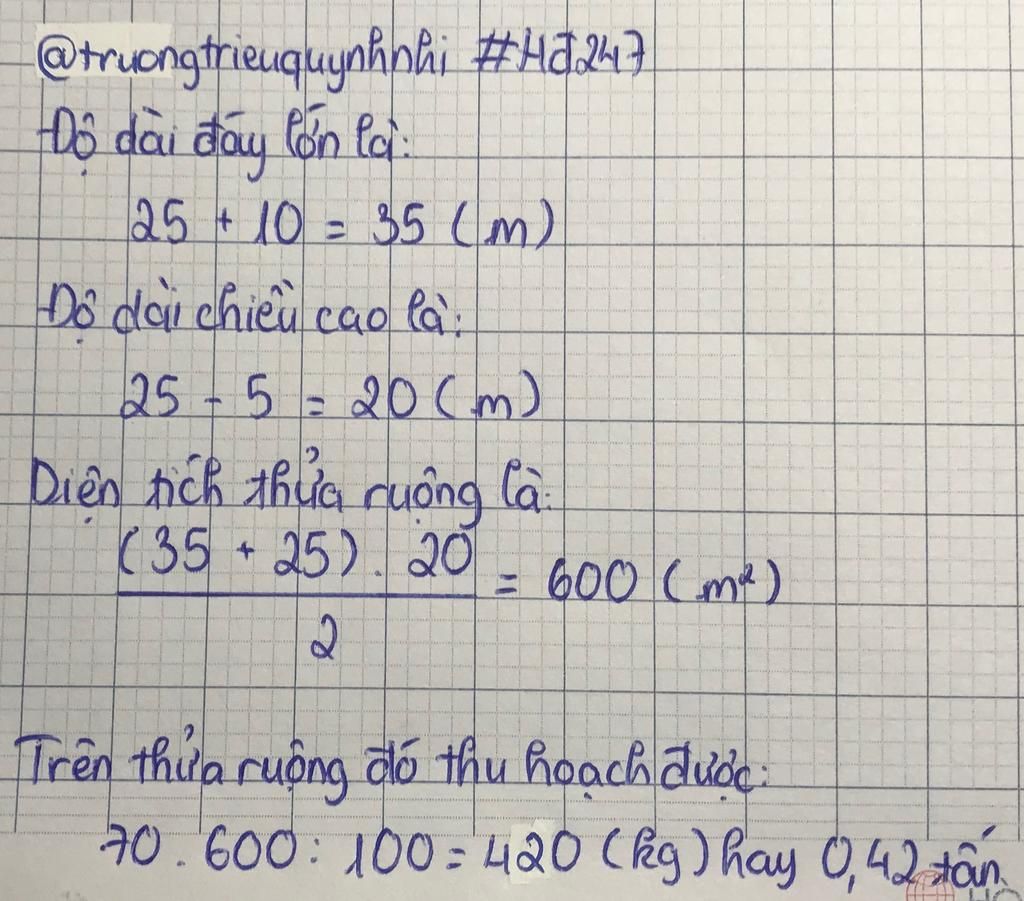 @truongtrieuquynhnhi #Hđ247
Độ dài đáy lớn là:
25 + 10 = 35 (m)
Độ dài chiều cao là:
25 - 5 = 20 (m)
Diện tích thửa ruộng là:
(35 + 25) . 20
= 600 (m²)
2
Trên thửa ruộng đó thu hoạch được:
70 . 600 : 100 = 420 (kg) hay 0,42 tấn.